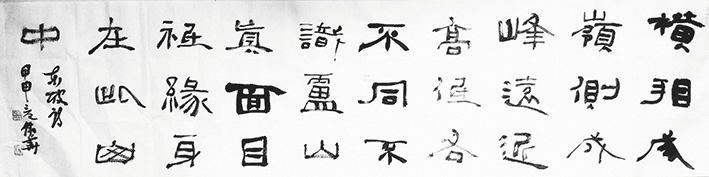 橫看成
嶺側成
峰遠近
高低各
不同不
識盧山
眞面目
祗緣身
在此山
中
東坡詩
甲申